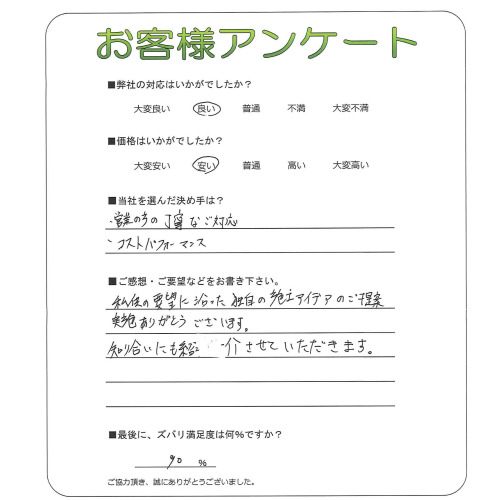 お客様アンケート
■弊社の対応はいかがでしたか？
大変良い 良い 普通 不満 大変不満
■価格はいかがでしたか？
大変安い 安い 普通 高い 大変高い
■当社を選んだ決め手は？
・営業の方の丁寧なご対応
・コストパフォーマンス
■ご感想・ご要望などをお書き下さい。
私自の要望に沿った独自の施工アイデアのご提案
ありがとうございます。
知り合いにも紹介させていただきます。
■最後に、ズバリ満足度は何%ですか？
90 %
ご協力頂き、誠にありがとうございました。